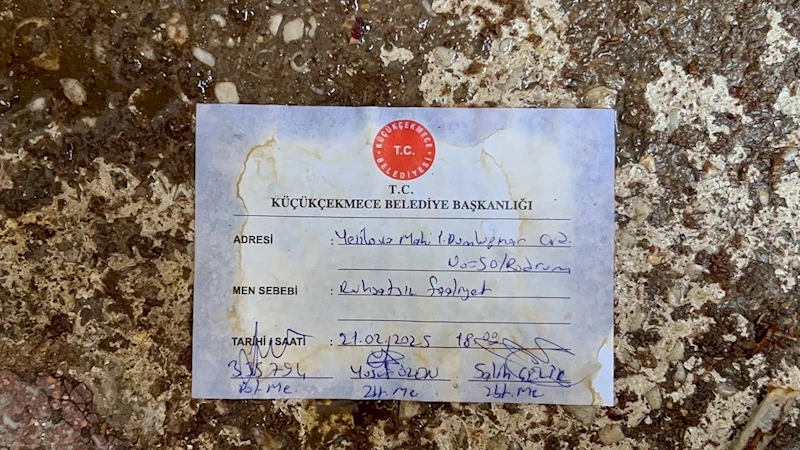 KÜÇÜKÇEKMECE
T.C.
BELEDİYESİ
T.C.
KÜÇÜKÇEKMECE BELEDİYE BAŞKANLIĞI
ADRESİ : Yeşilova Mah. 1. Dumlupınar Cad.
No=50/Bodrum
MEN SEBEBİ : Ruhsatsız faaliyet
TARİHİ / SAATİ : 21.02/2025 18:00
335794 Yusuf ÖZEN Salih ÇELİK
Zbt. Me. Zbt. Me. Zbt. Me.